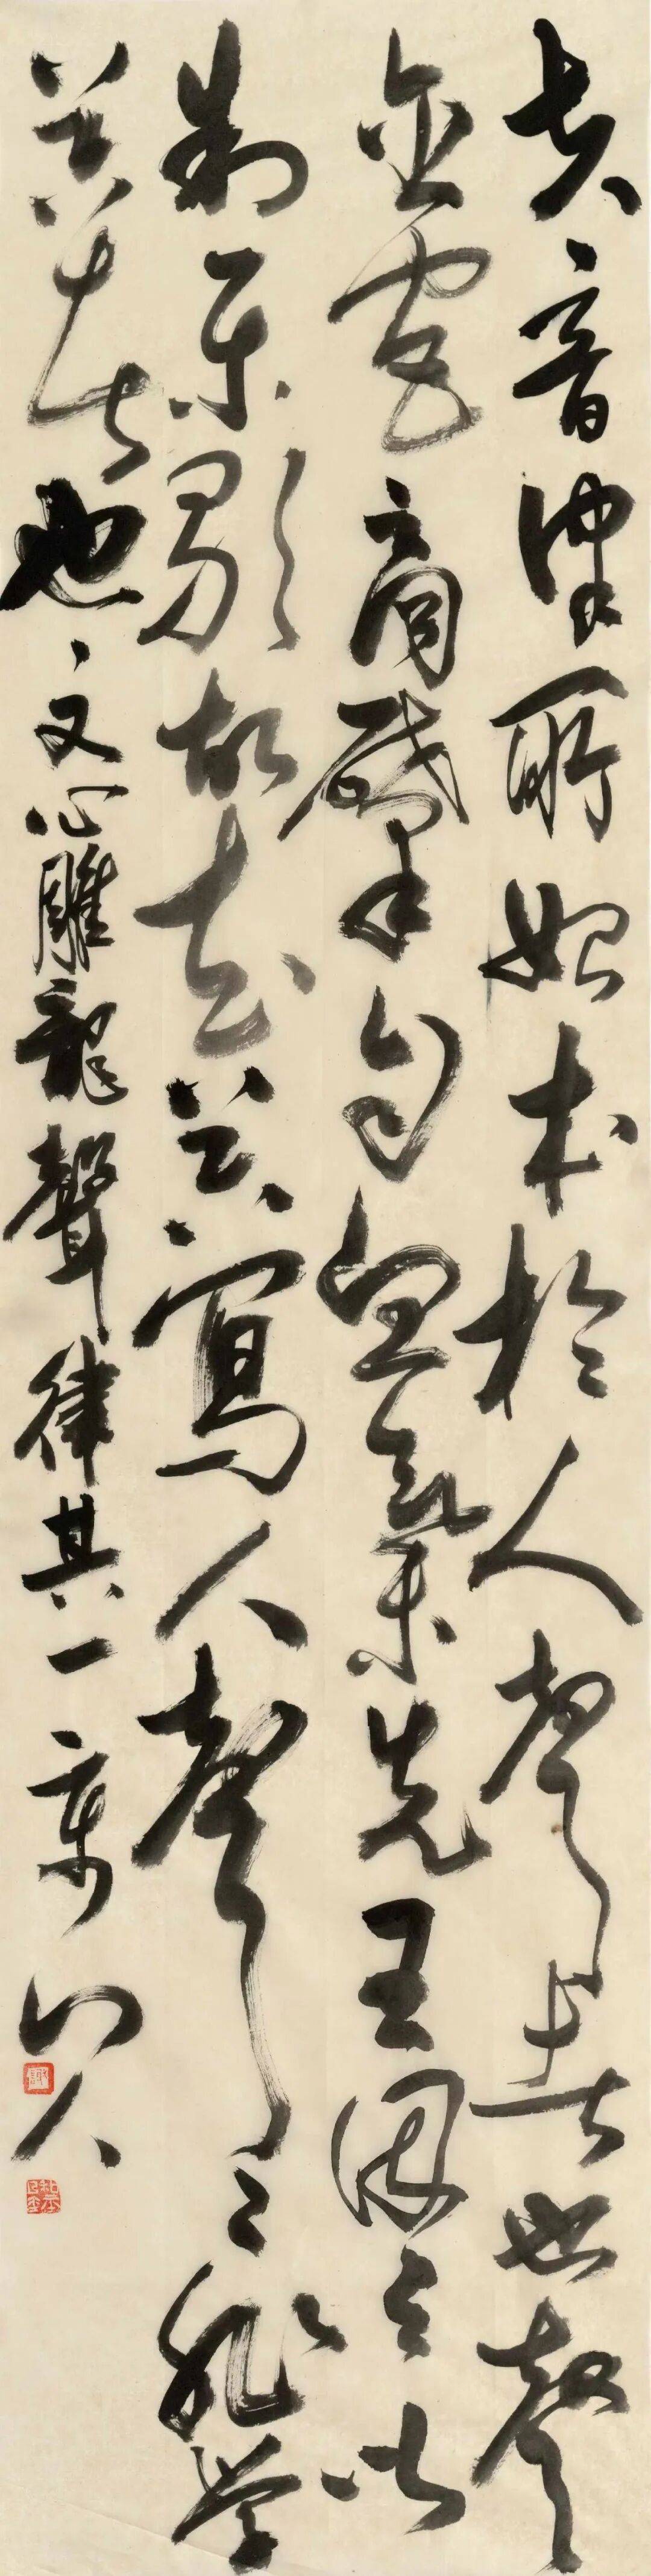 夫音律所始本於人聲者也聲
含宮商肇自血氣先王因之以
制樂歌故知器寫人聲〻非学
器者也 文心雕龍聲律其一 山人